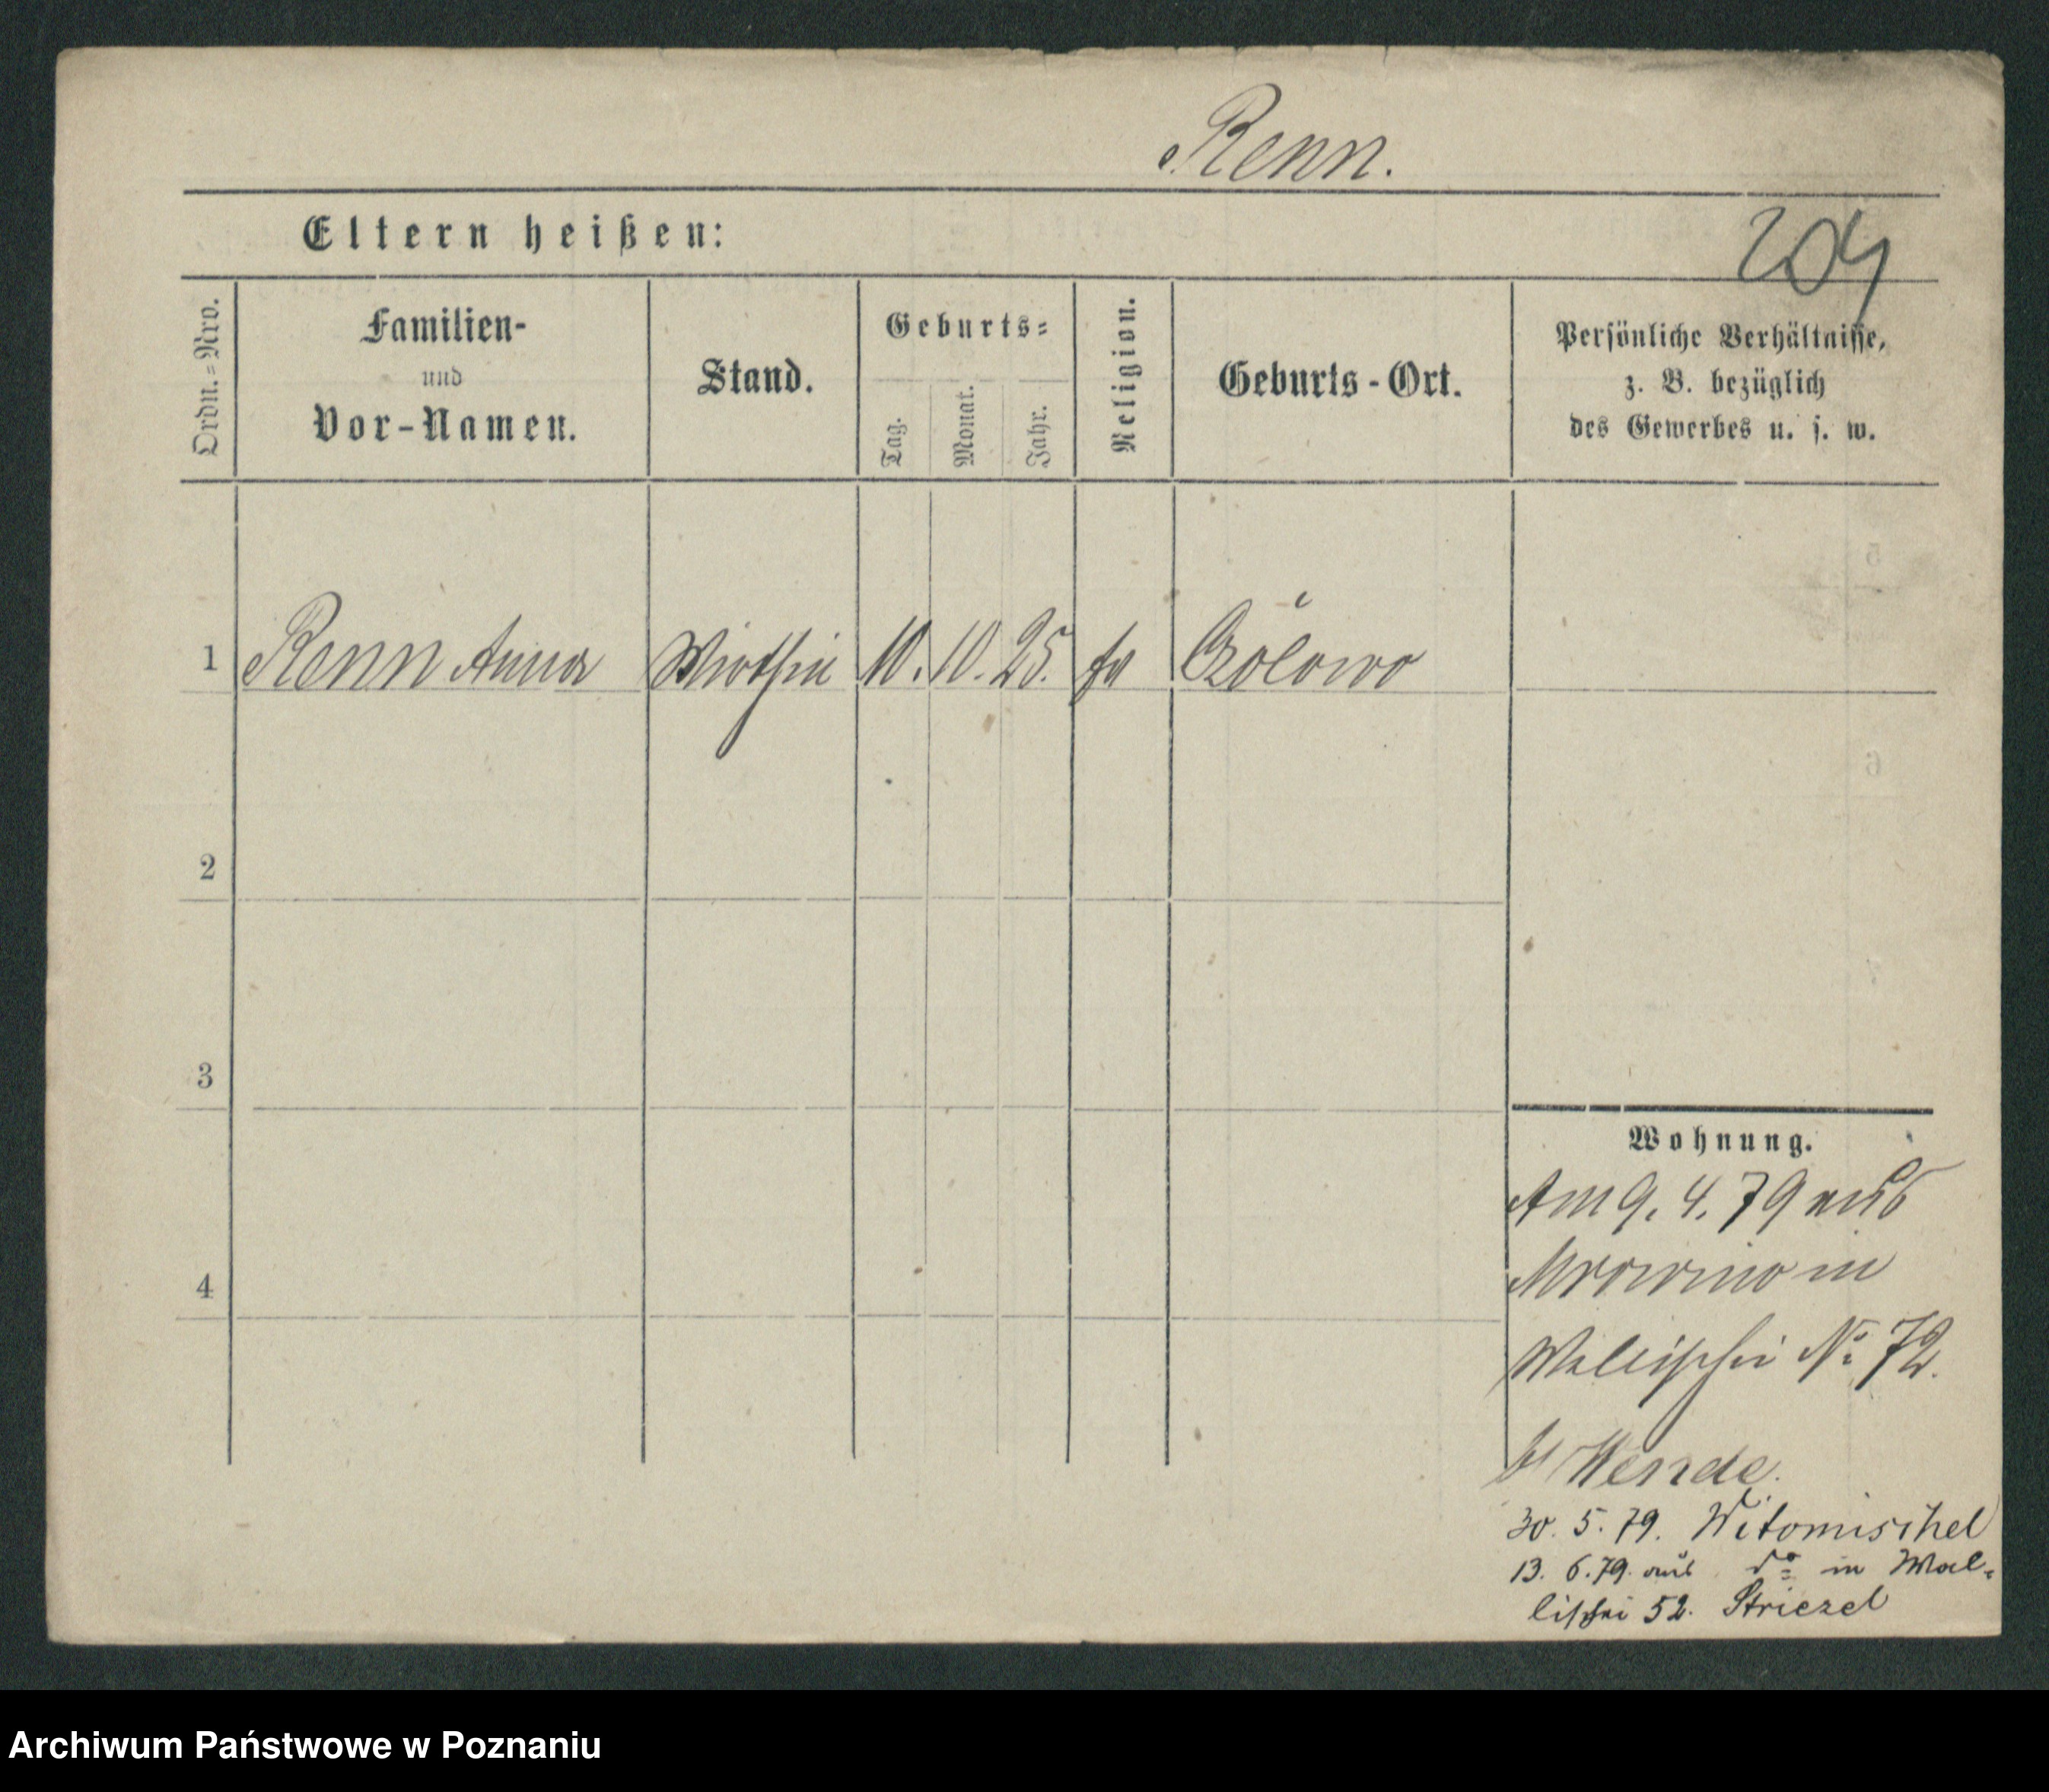 Renn.
Eltern heißen:
204
Ordn.=Nro.
Familien-
und
Vor-Namen.
Stand.
Geburts=
Tag.
Monat.
Jahr.
Religion.
Geburts-Ort.
Persönliche Verhältnisse,
z. B. bezüglich
des Gewerbes u. s. w.
1 Renn Anna Wirthin 10. 10. 25.
2
3
4
Wohnung.
Am 9. 4. 79 aus
Mrowino in
Wallischei No 72.
Wende.
30. 5. 79. Witomischel
13. 6. 79. aus do in Wal=
lischei 52. Striezel
Archiwum Państwowe w Poznaniu